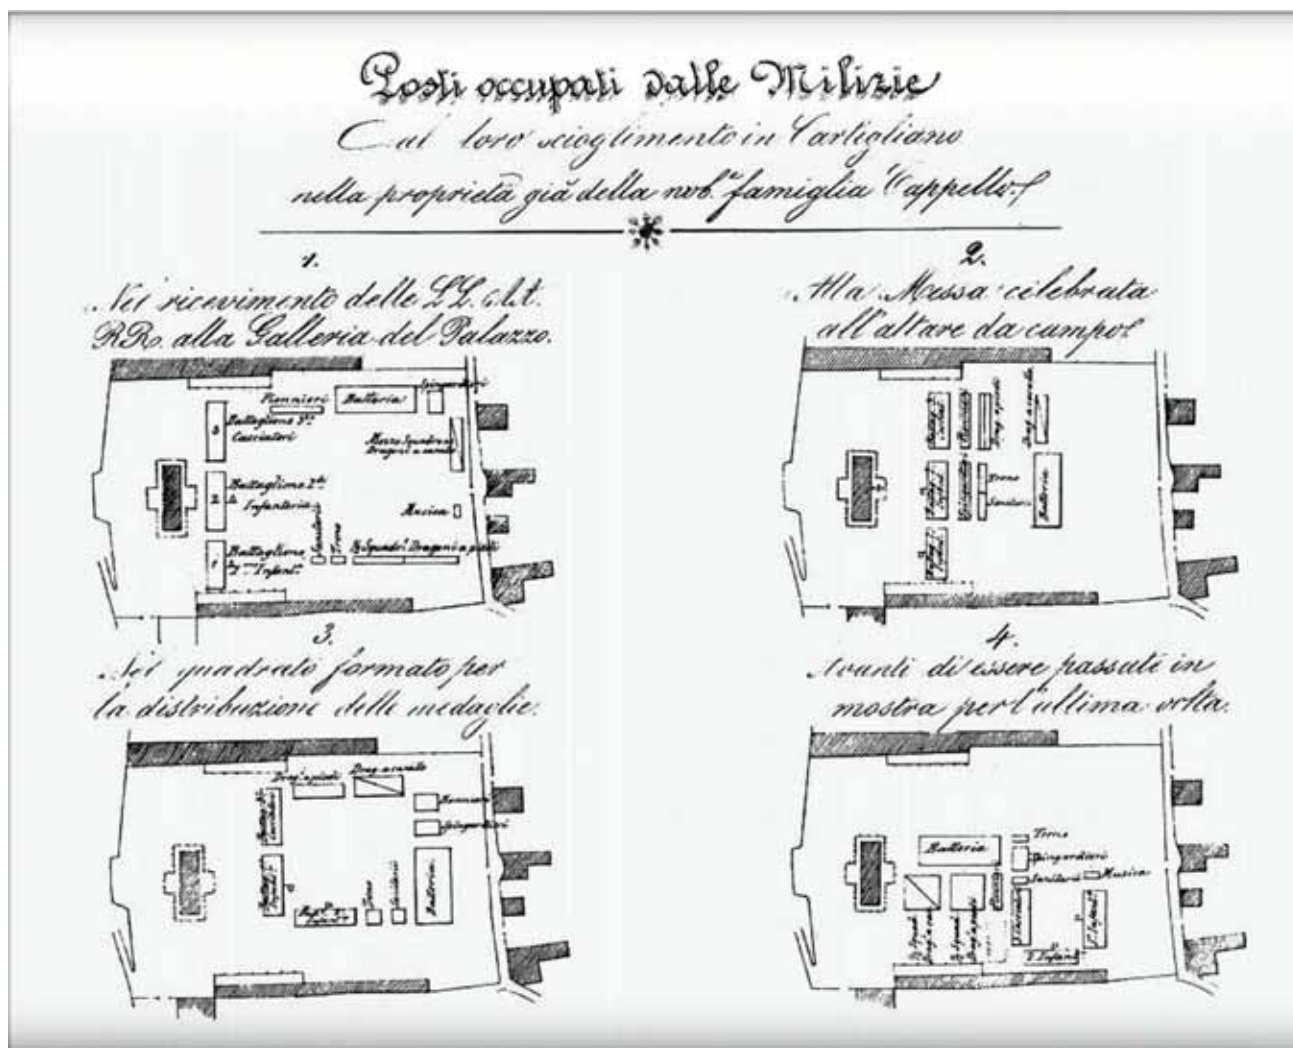 Posti occupati dalle Milizie
al loro scioglimento in Cartigliano
nella proprietà già della nob. famiglia Cappello
1.
Nel ricevimento delle LL. A.A.
RR. alla Galleria del Palazzo.
Pionnieri
Batteria
Spingardieri
3
Battaglione 3º
Cacciatori
Mezzo Squadrone
Dragoni a cavallo
2
Battaglione 2º
Infanteria
Musica
1
Battaglione
Infant.
Sanitarii
Treno
Squadr. Dragoni a piedi
2.
Alla Messa celebrata
all'altare da campo.
Drag. a piedi
Drag. a cavallo
Treno
Sanitarii
Batteria
3.
Nel quadrato formato per
la distribuzione delle medaglie.
Drag. a piedi
Drag. a cavallo
Pionnieri
Spingardieri
Batteria
Treno
Sanitarii
4.
Avanti di essere passati in
mostra per l'ultima volta.
Batteria
Treno
Spingardieri
Sanitarii
Musica
Squad.
Drag. a cav.
Squad.
Drag. a piedi